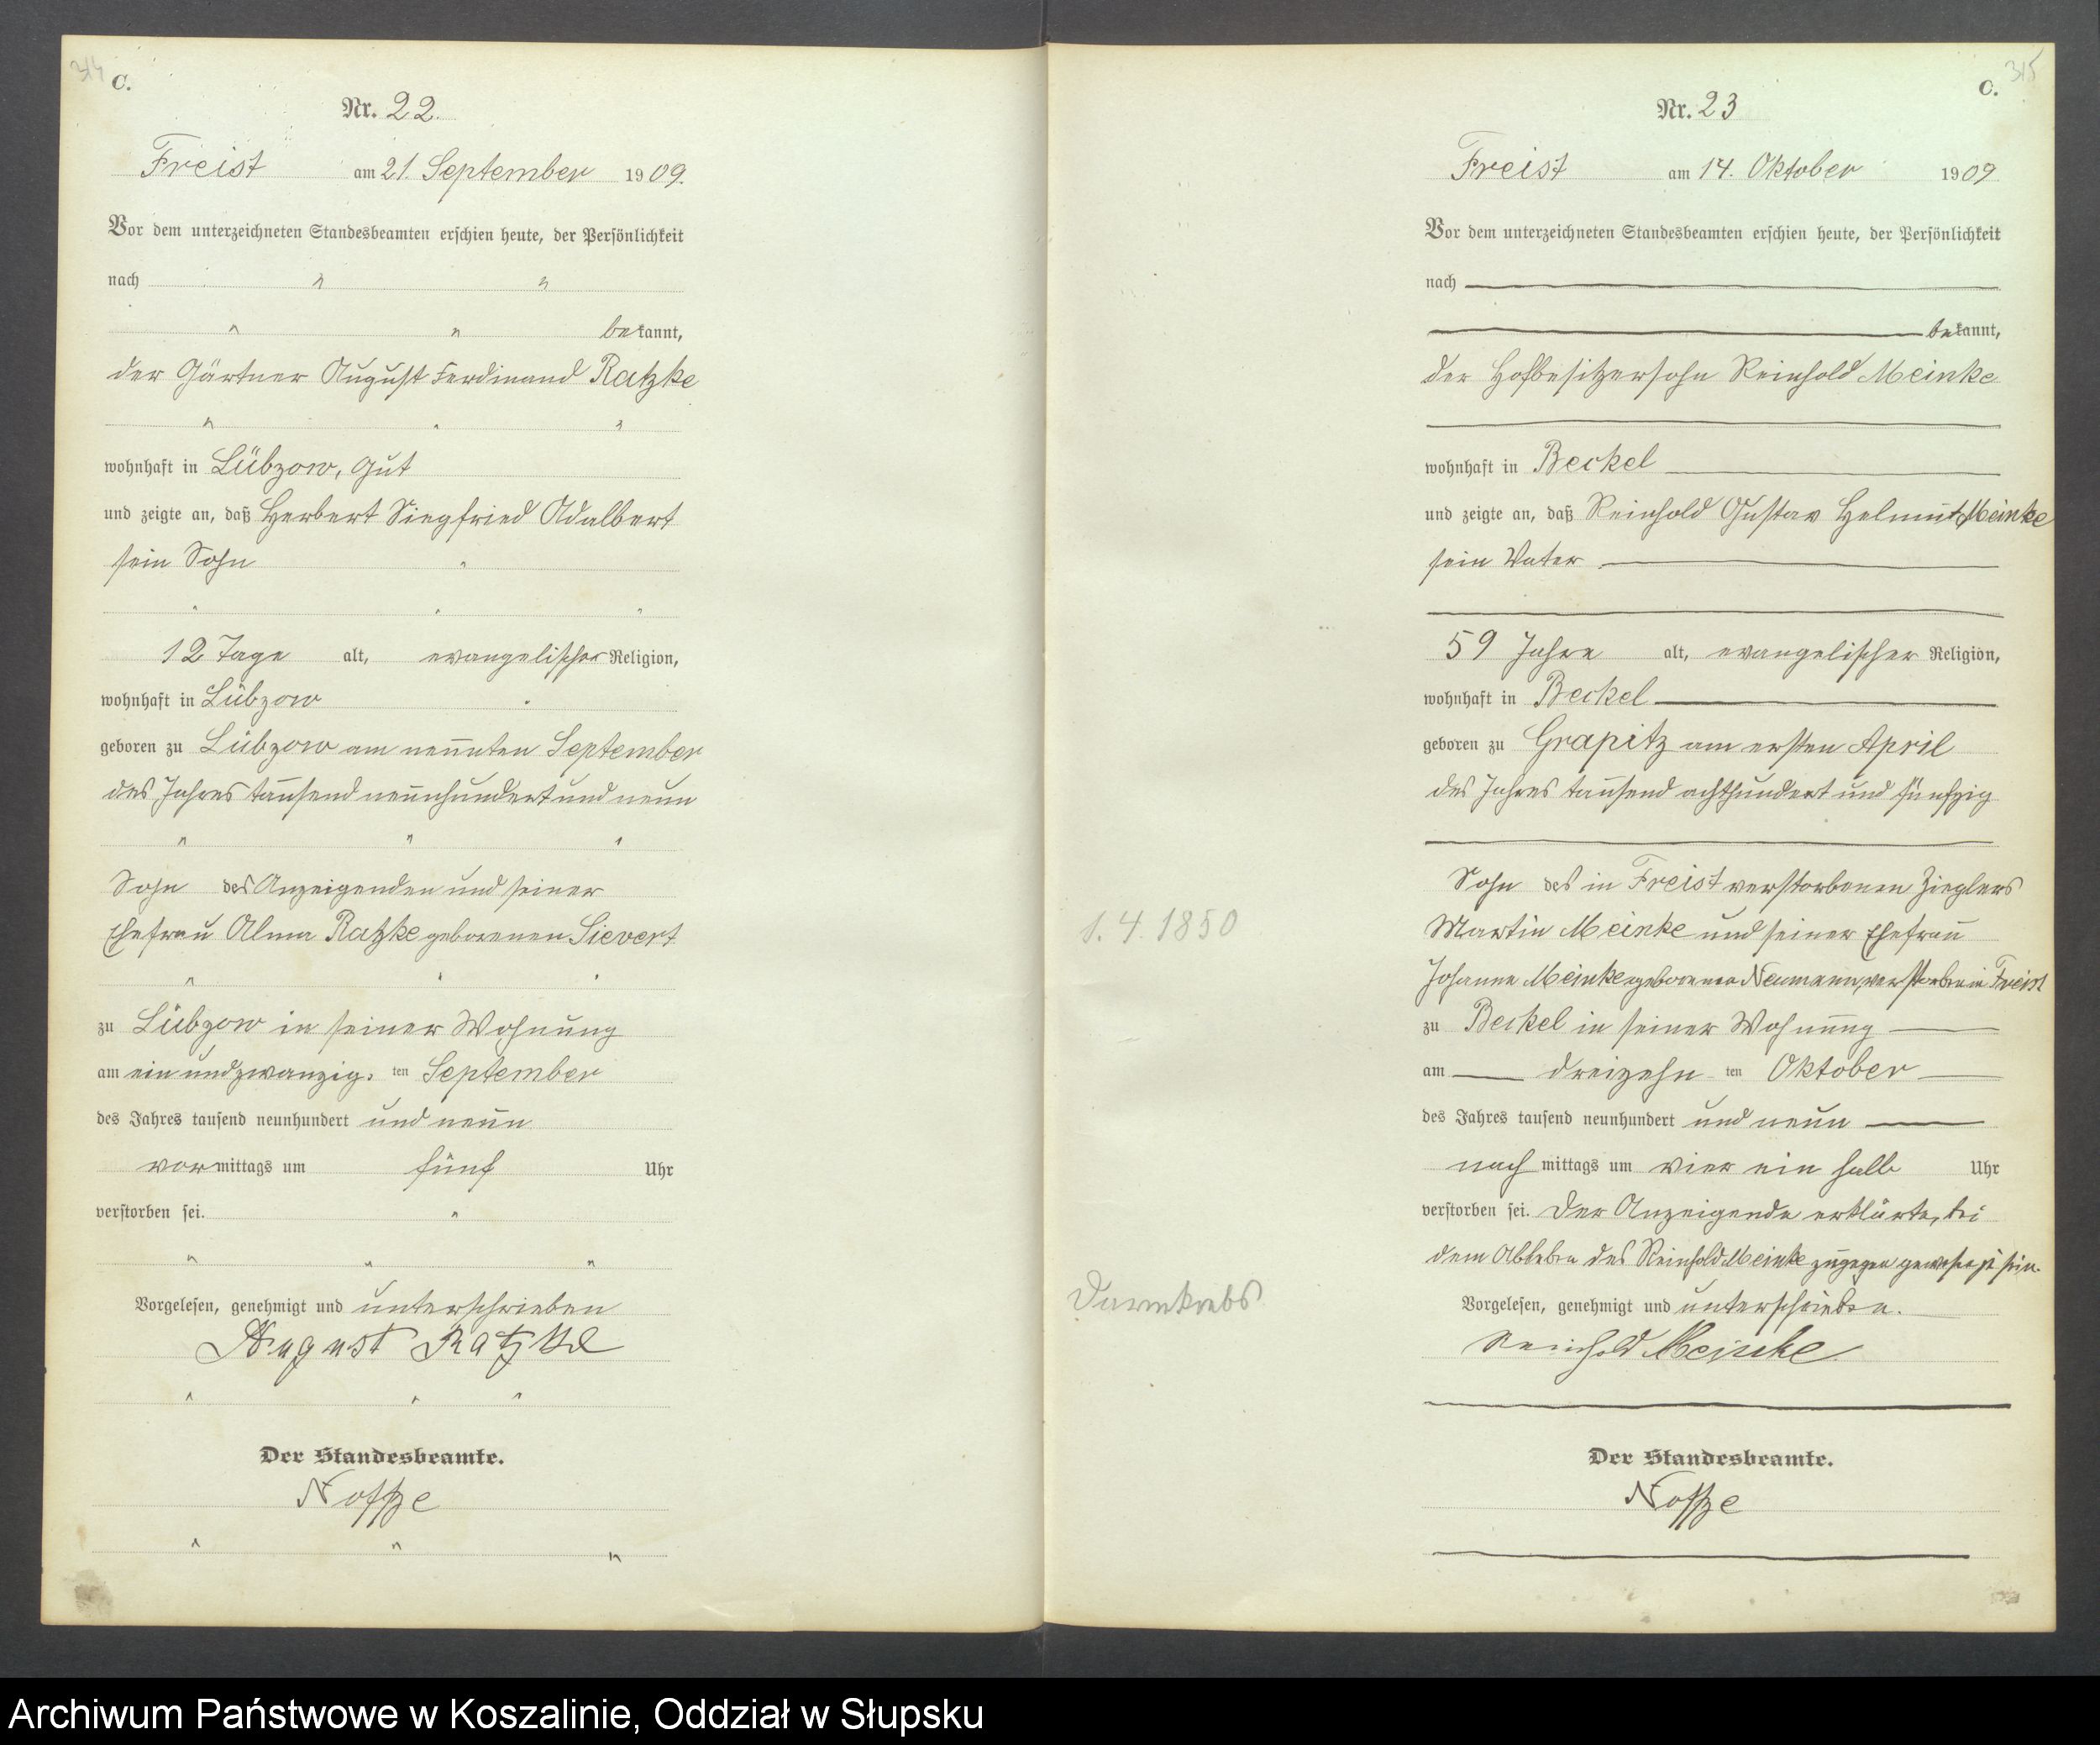 314
C.
Nr. 22.
Freist am 21. September 1909.
Vor dem unterzeichneten Standesbeamten erschien heute, der Persönlichkeit
nach
bekannt,
der Gärtner August Ferdinand Ratzke
wohnhaft in Lübzow, Gut
und zeigte an, daß Herbert Siegfried Adalbert
sein Sohn
12 Tage alt, evangelischer Religion,
wohnhaft in Lübzow
geboren zu Lübzow am neunten September
des Jahres tausend neunhundert und neun
Sohn des Anzeigenden und seiner
Ehefrau Alma Ratzke geborenen Sievert
zu Lübzow in seiner Wohnung
am ein und zwanzig. ten September
des Jahres tausend neunhundert und neun
vormittags um fünf Uhr
verstorben sei.
Vorgelesen, genehmigt und unterschrieben
August Ratzke
Der Standesbeamte.
315
C.
Nr. 23
Freist am 14. Oktober 1909
Vor dem unterzeichneten Standesbeamten erschien heute, der Persönlichkeit
nach
bekannt,
der Hofbesitzersohn Reinhold Meinke
wohnhaft in Beckel
und zeigte an, daß Reinhold Gustav Helmut Meinke
sein Vater
59 Jahre alt, evangelischer Religion,
wohnhaft in Beckel
geboren zu Grapitz am ersten April
des Jahres tausend achthundert und fünfzig
Sohn des in Freist verstorbenen Zieglers
1.4.1850
Martin Meinke und seiner Ehefrau
Johanna Meinke geborenen Neumann, verstorben in Freist
zu Beckel in seiner Wohnung
am dreizehn ten Oktober
des Jahres tausend neunhundert und neun
nachmittags um vier ein halb Uhr
verstorben sei. Der Anzeigende erklärte, bei
dem Ableben des Reinhold Meinke zugegen gewesen zu sein.
Darmkrebs
Vorgelesen, genehmigt und unterschrieben.
Reinhold Meinke
Der Standesbeamte.
Archiwum Państwowe w Koszalinie, Oddział w Słupsku